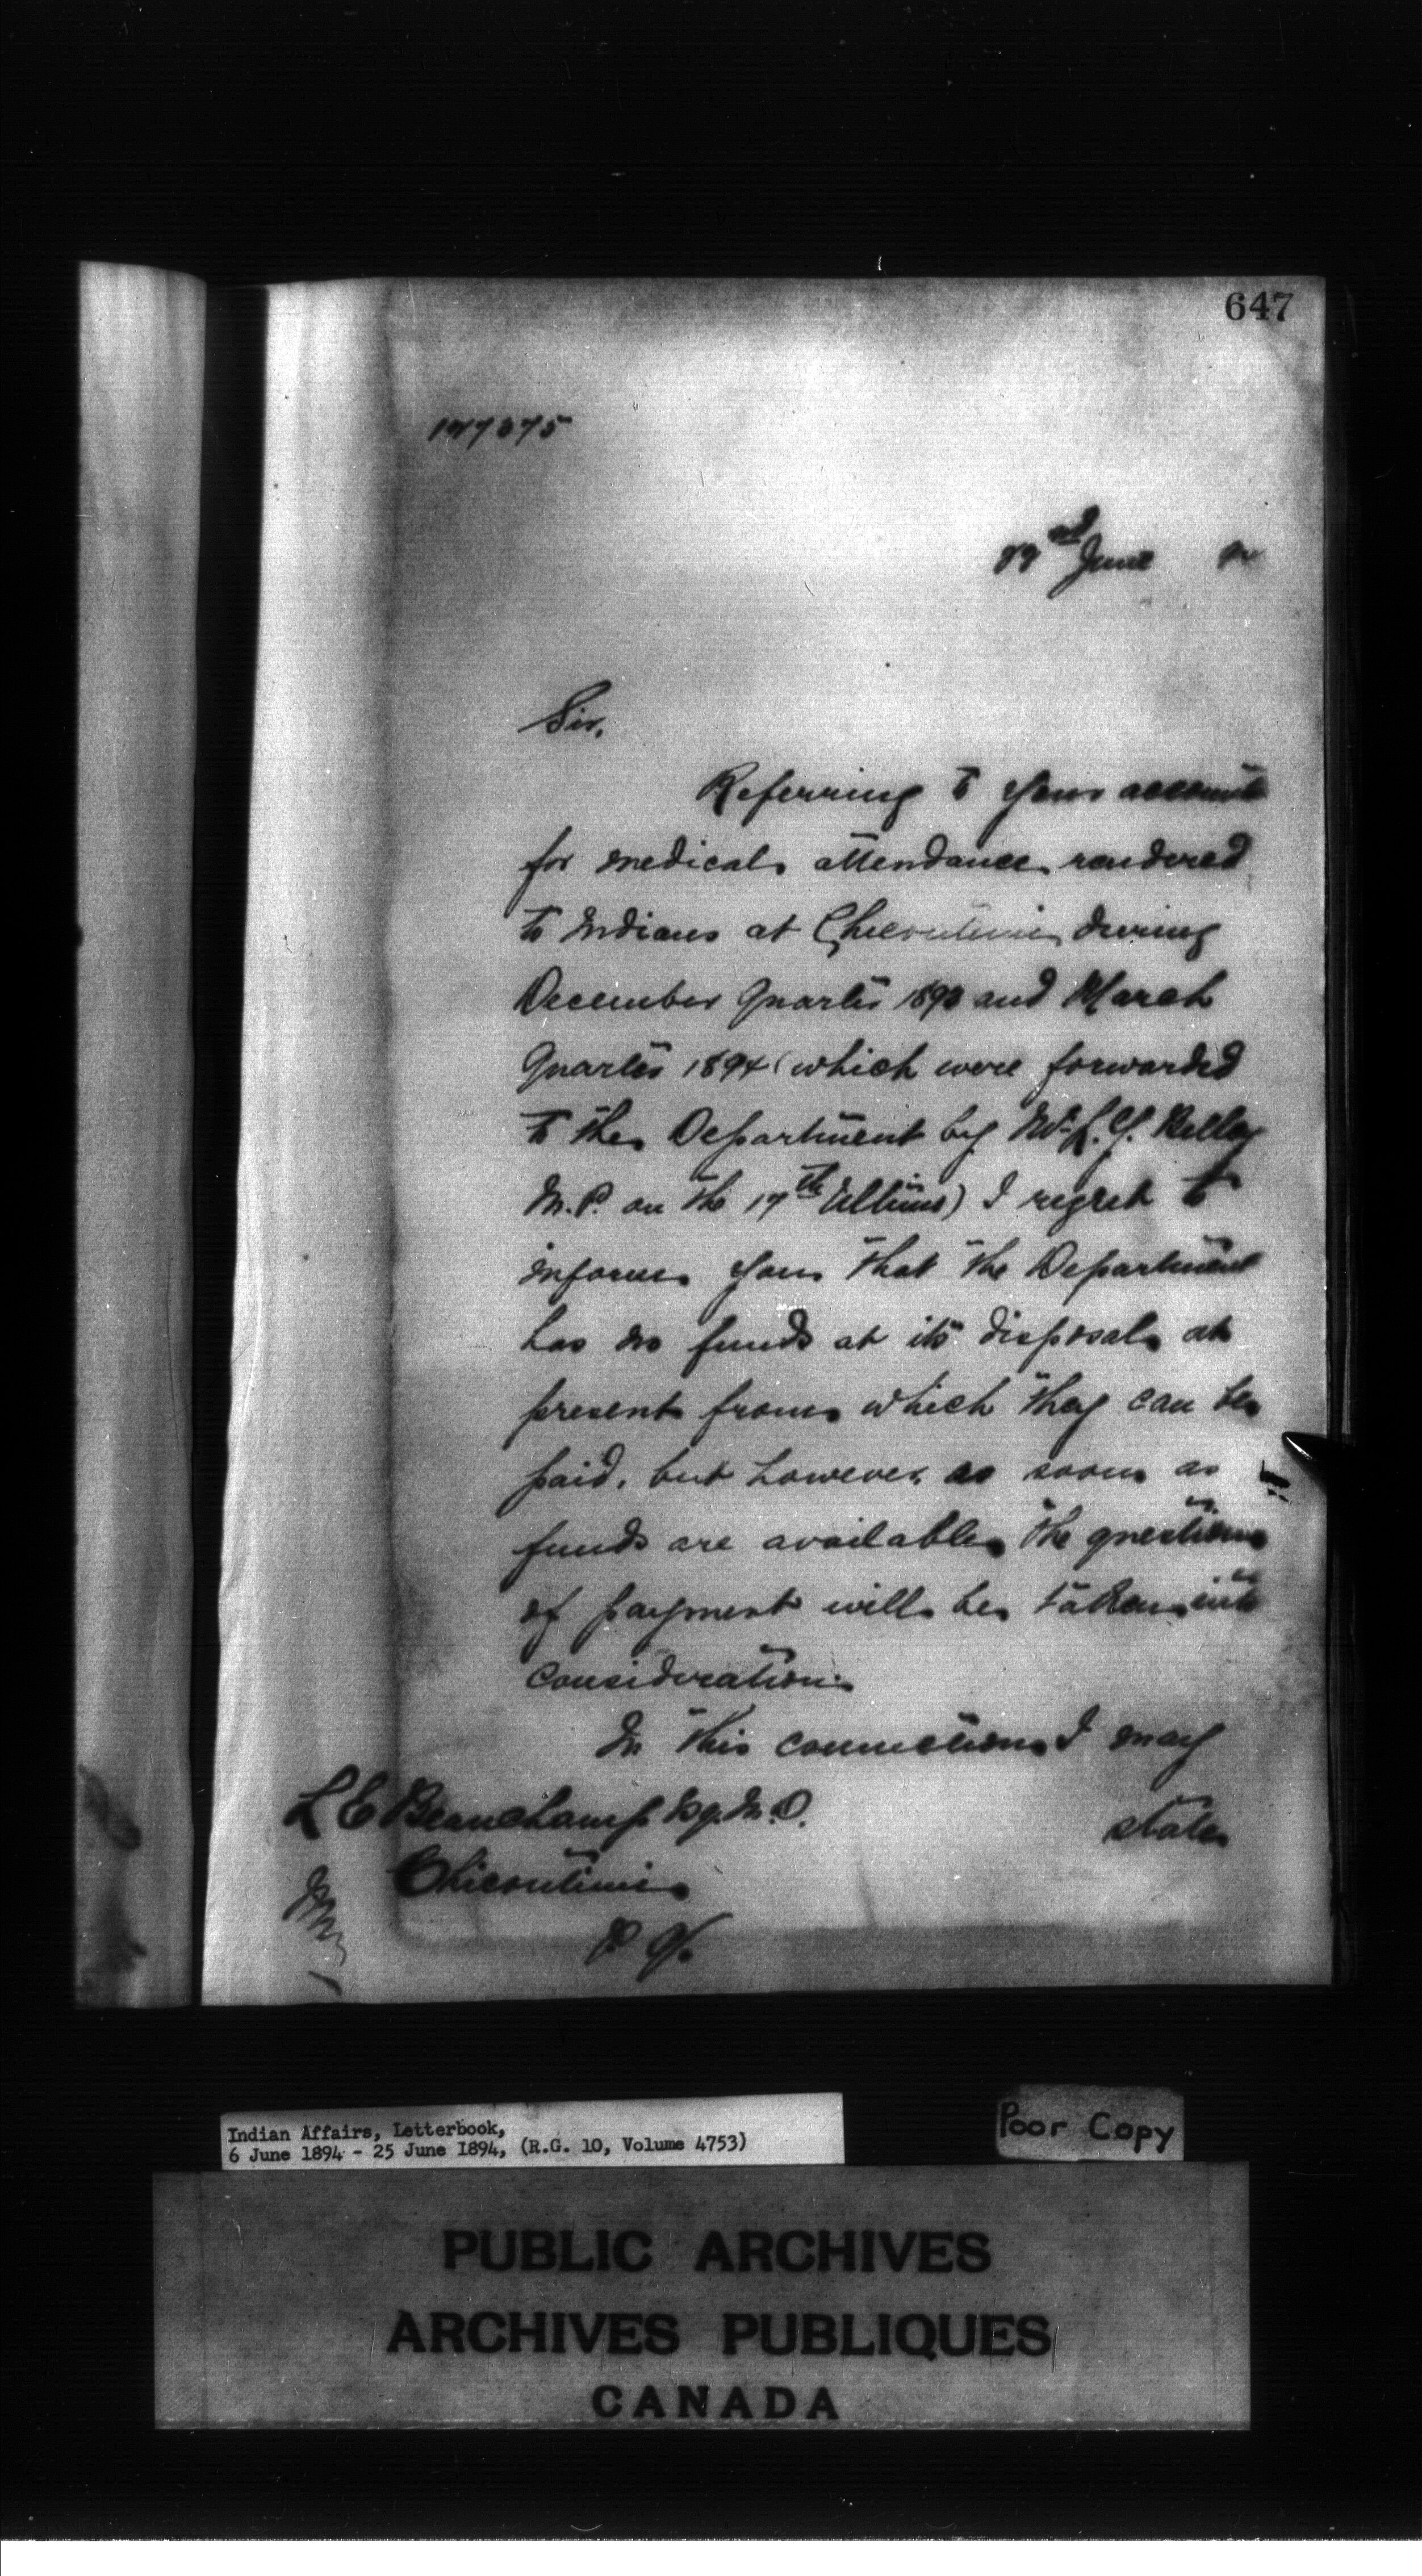 647
147375
22nd June
Sir,
Referring to your accounts
for medical attendance rendered
to Indians at Chicoutimi during
December Quarter 1893 and March
Quarter 1894 (which were forwarded
to the Department by Mr. L. G. Belley
M.P. on the 17th Ultimo) I regret to
inform you that the Department
has no funds at its disposal at
present from which they can be
paid, but however as soon as
funds are available the question
of payment will be taken into
consideration.
In this connection I may
state
L E Beauchamp Esq. M.D.
Chicoutimi
P Q.
Indian Affairs, Letterbook,
6 June 1894 - 25 June 1894, (R.G. 10, Volume 4753)
Poor Copy
PUBLIC ARCHIVES
ARCHIVES PUBLIQUES
CANADA